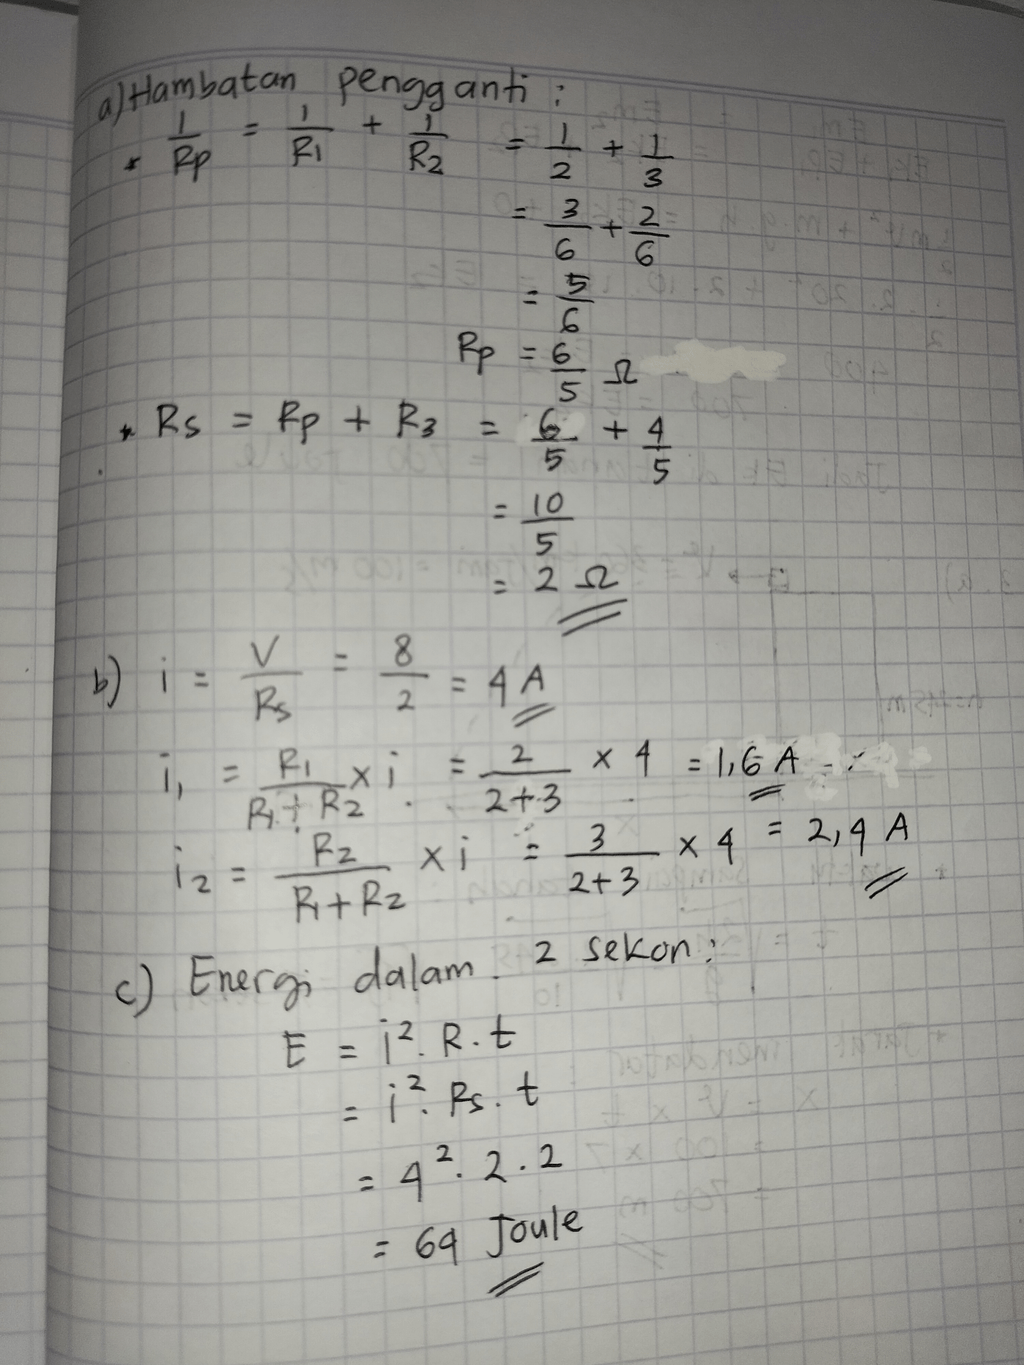 a) Hambatan pengganti :
* 1/Rp = 1/R1 + 1/R2 = 1/2 + 1/3
= 3/6 + 2/6
= 5/6
Rp = 6/5 Ω
* Rs = Rp + R3 = 6/5 + 4/5
= 10/5
= 2 Ω
b) i = V/Rs = 8/2 = 4 A
i1 = R1/(R1 + R2) x i = 2/(2+3) x 4 = 1,6 A
i2 = R2/(R1 + R2) x i = 3/(2+3) x 4 = 2,4 A
c) Energi dalam 2 sekon :
E = i². R. t
= i². Rs. t
= 4². 2 . 2
= 64 Joule